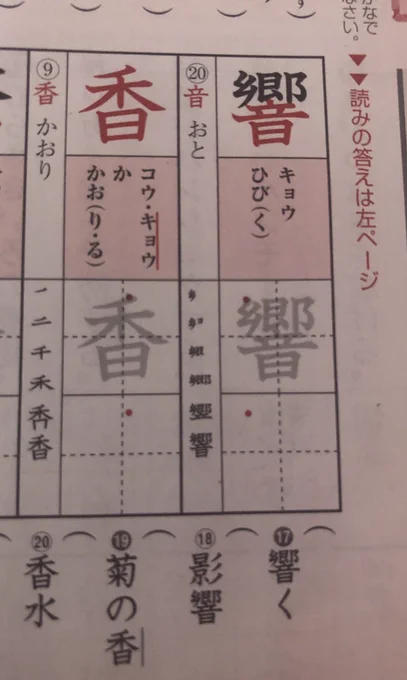 かなで
なさい。
▼▼読みの答えは左ページ
響
キョウ
ひび(く)
響
⑳音 おと
響
香
コウ・キョウ
か
かお(り・る)
香
⑨香 かおり
一 二 千 禾 香 香
⓱響く
⑱影響
⓳菊の香
⑳香水